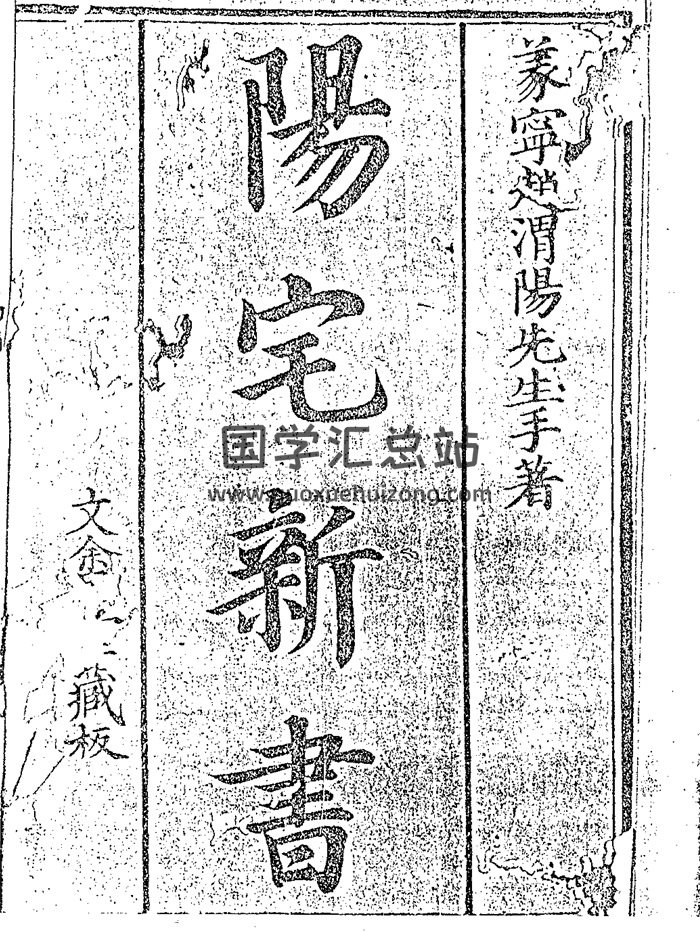 寧趙渭陽先生手著
陽宅新書
文金
藏板
国学汇总站
www.guoxuehuizong.com